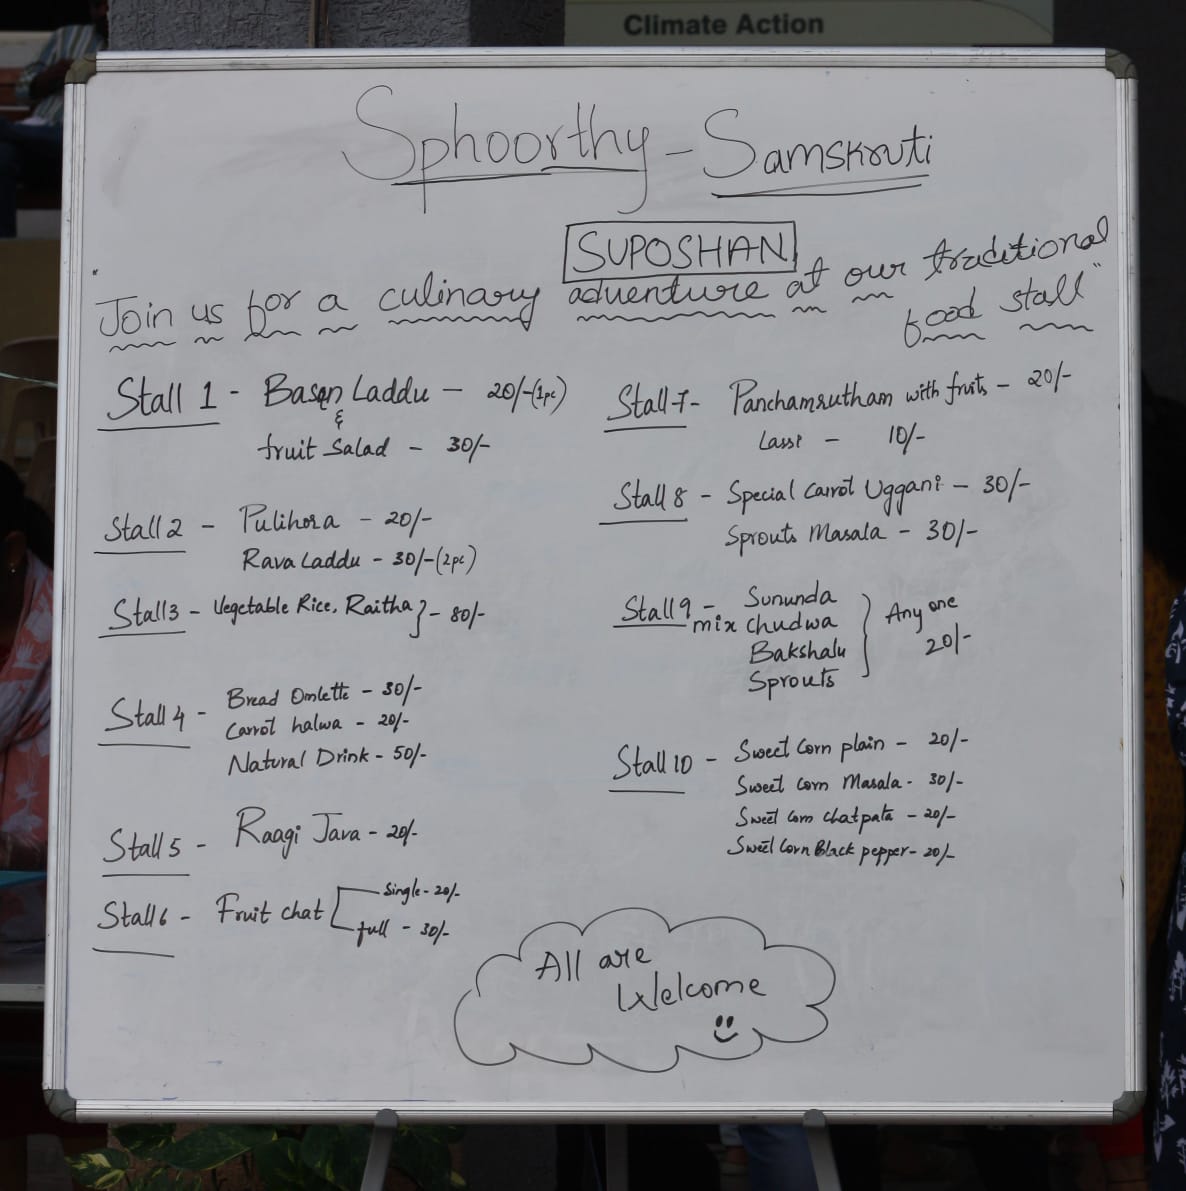 Climate Action
Sphoorthy - Samskruti
SUPOSHAN
"Join us for a culinary adventure at our traditional
food stall"
Stall 1 - Basen Laddu - 20/-(1pc)
&
fruit Salad - 30/-
Stall 2 - Pulihora - 20/-
Rava Laddu - 30/-(2pc)
Stall 3 - Vegetable Rice, Raitha } - 80/-
Stall 4 - Bread Omlette - 30/-
Carrot halwa - 20/-
Natural Drink - 50/-
Stall 5 - Raagi Java - 20/-
Stall 6 - Fruit chat
Single - 20/-
full - 30/-
Stall-7- Panchamrutham with fruits - 20/-
Lassi - 10/-
Stall 8 - Special Carrot Uggani - 30/-
Sprouts Masala - 30/-
Stall 9 - Sununda
mix chudwa
Bakshalu
Sprouts
Any one
20/-
Stall 10 - Sweet Corn plain - 20/-
Sweet Corn Masala - 30/-
Sweet Corn chatpata - 20/-
Sweet Corn Black pepper - 20/-
All are
Welcome